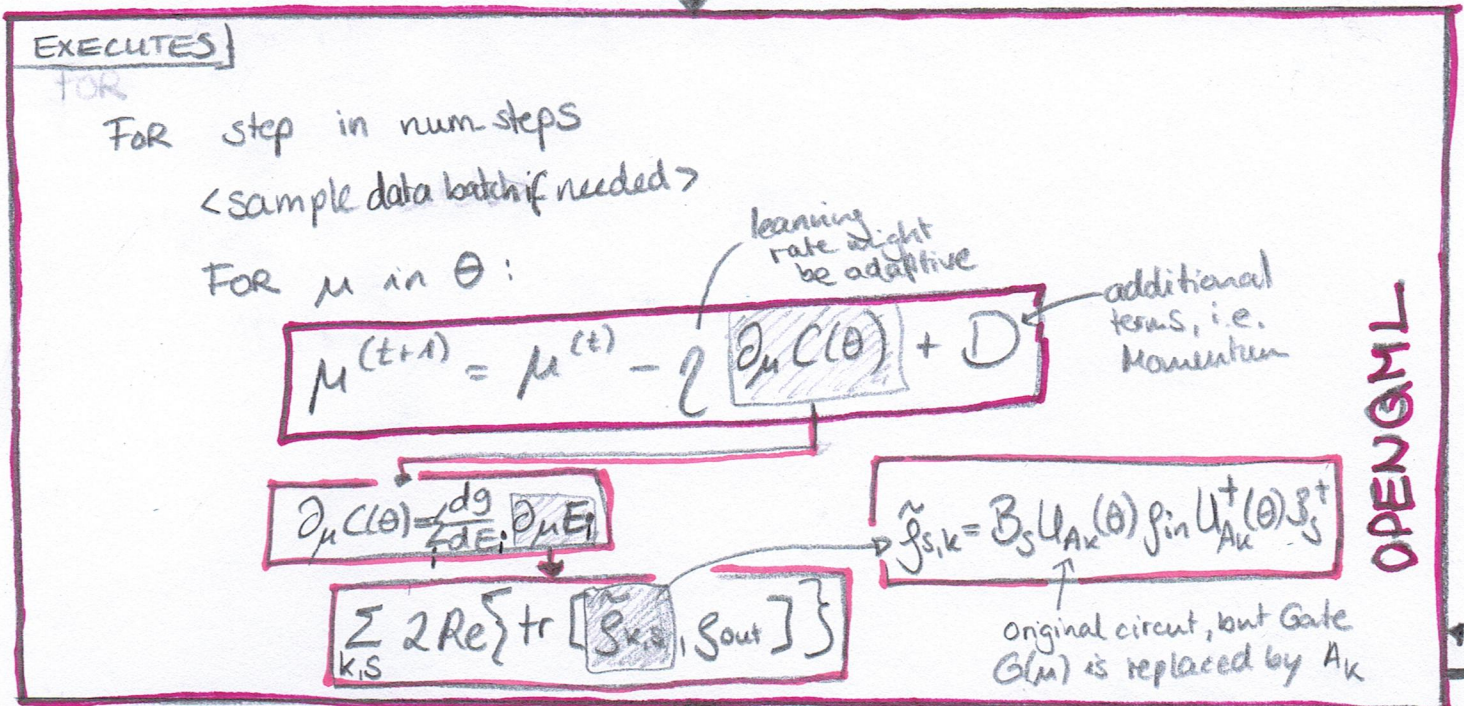 EXECUTES
FOR
FOR step in num-steps
<sample data batch if needed>
FOR μ in θ :
learning
rate might
be adaptive
additional
terms, i.e.
Momentum
μ^(t+1) = μ^(t) - η ∂μ C(θ) + D
∂μ C(θ) = Σ_i dg/dE_i ∂μ E_i
ρ̃_s,k = B_s U_Ak(θ) ρin U†_Ak(θ) B_s†
Σ_k,s 2Re{tr [ρ̃_k,s, ρout]}
original circut, but Gate
G(μ) is replaced by A_k
OPENQML